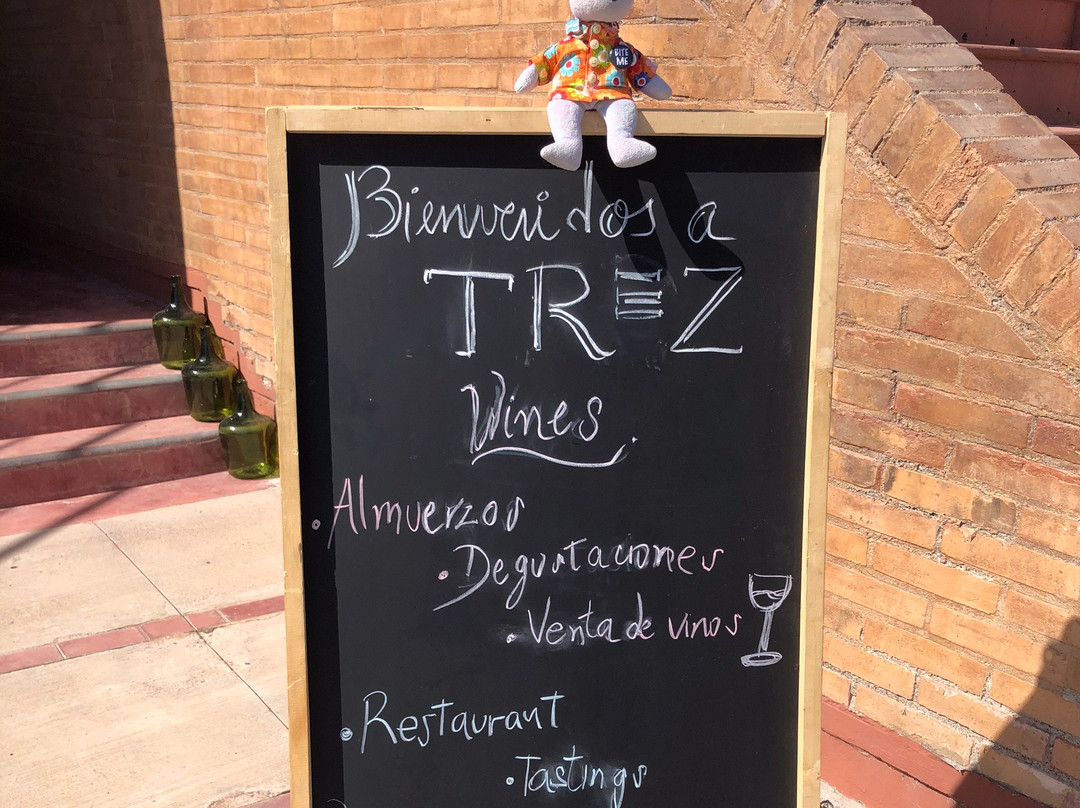 BITE
ME
Bienvenidos a
TREZ
Wines.
. Almuerzos
. Degustaciones
. Venta de vinos
. Restaurant
. Tastings